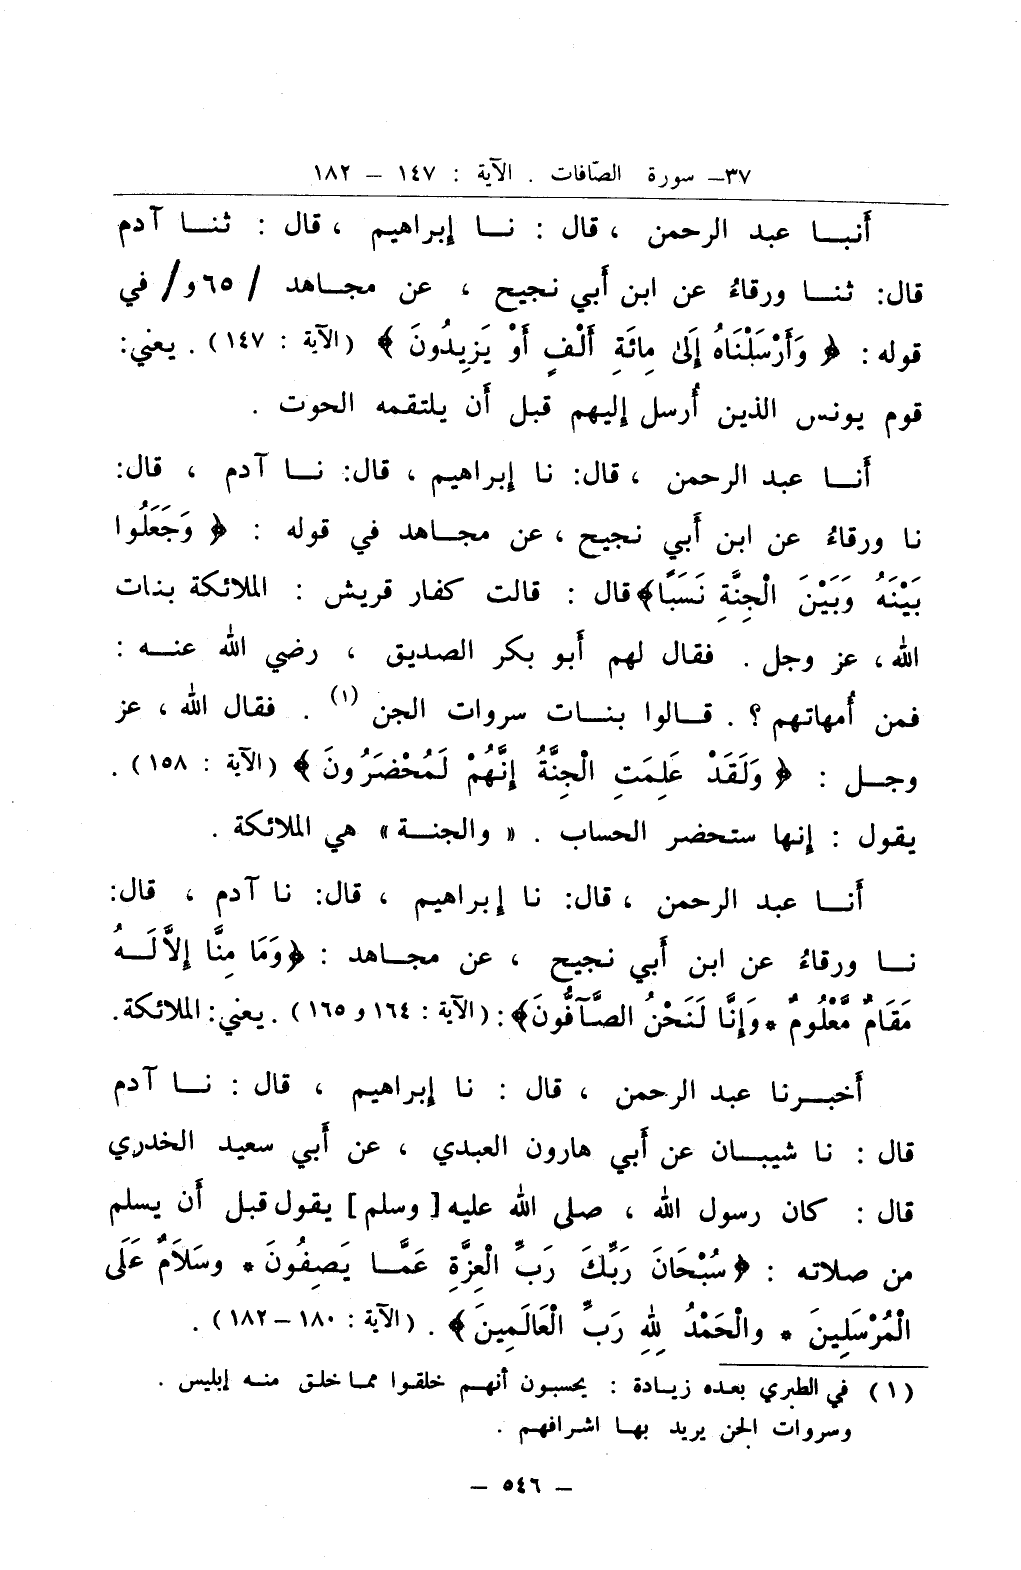 ٣٧ـ سورة الصّافات . الآية : ١٤٧ – ١٨٢
أَنبـا عبد الرحمن ، قال : نـا إبراهيم ، قال : ثنـا آدم
قال: ثنـا ورقاءُ عن ابن أَبي نجيح ، عن مجـاهد / ٦٥و/ في
قوله : ﴿ وَأَرْسَلْنَاهُ إِلَىٰ مِائَةِ أَلْفٍ أَوْ يَزِيدُونَ ﴾ (الآية : ١٤٧) . يعني:
قوم يونس الذين أُرسل إليهم قبل أَن يلتقمه الحوت .
أَنـا عبد الرحمن ، قال: نا إبراهيم ، قال: نـا آدم ، قال:
نا ورقاءُ عن ابن أَبي نجيح ، عن مجـاهد في قوله : ﴿ وَجَعَلُوا
بَيْنَهُ وَبَيْنَ الْجِنَّةِ نَسَبًا﴾ قال : قالت كفار قريش : الملائكة بنات
الله ، عز وجل . فقال لهم أَبو بكر الصديق ، رضي الله عنـه :
فمن أُمهاتهم ؟ . قـالوا بنـات سروات الجن (١) . فقال الله ، عز
وجـل : ﴿ وَلَقَدْ عَلِمَتِ الْجِنَّةُ إِنَّهُمْ لَمُحْضَرُونَ ﴾ (الآية : ١٥٨) .
يقول : إنها ستحضر الحساب . « والجنـة » هي الملائكة .
أَنـا عبد الرحمن ، قال: نا إبراهيم ، قال: نا آدم ، قال:
نـا ورقاءُ عن ابن أَبي نجيح ، عن مجـاهد : ﴿وَمَا مِنَّا إِلاَّ لَـهُ
مَقَامٌ مَّعْلُومٌ * وَإِنَّا لَنَحْنُ الصَّآفُّونَ﴾ : (الآية : ١٦٤ و ١٦٥) . يعني: الملائكة.
أَخبـرنا عبد الرحمن ، قال : نا إبراهيم ، قال : نـا آدم
قال : نا شيبـان عن أَبي هارون العبدي ، عن أَبي سعيد الخدري
قال : كان رسول الله ، صلى الله عليه [ وسلم ] يقول قبل أَن يسلم
من صلاته : ﴿ سُبْحَانَ رَبِّكَ رَبِّ الْعِزَّةِ عَمَّـا يَصِفُونَ * وسَلَامٌ عَلَى
الْمُرْسَلِينَ * والْحَمْدُ لِلهِ رَبِّ الْعَالَمِينَ ﴾ . (الآية : ١٨٠ – ١٨٢) .
(١) في الطبري بعده زيـادة : يحسبون أنهـم خلقوا ممـا خلق منـه إبليس .
وسروات الجن يريد بهـا اشرافهم .
– ٥٤٦ –